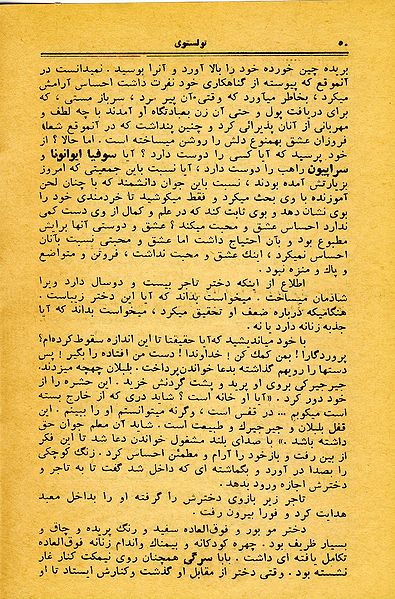 ۵۰
تولستوی
بریده چین خورده خود را بالا آورد و آنرا بوسید . نمیدانست در
آنموقع که پیوسته از گناهکاری خود نفرت داشت احساس آرامش
میکرد ، بخاطر میآورد که وقتی آن پیر مرد ، سرباز مستی ، که
برای دریافت پول و حتی آن زن بصادتگاه او آمدند با چه لطف و
مهربانی از آنان پذیرائی کرد و چنین پنداشت که در آنموقع شعلهٔ
فروزان عشق بهمنوع دلش را روشن میساخته است . اما حالا ؟ از
خود پرسید که آیا کسی را دوست دارد ؟ آیا سوفیا ایوانونا و
سراپیون راهب را دوست دارد ، آیا نسبت باین جمعیتی که امروز
بزیارتش آمده بودند ، نسبت باین جوان دانشمند که با چنان لحن
آموزنده با وی بحث میکرد و فقط میکوشید تا خردمندی خود را
بوی نشان دهد و بوی ثابت کند که در علم و کمال از وی دست کمی
ندارد احساس عشق و محبت میکند ؟ عشق و دوستی آنها برایش
مطبوع بود و بآن احتیاج داشت اما عشق و محبتی نسبت بآنان
احساس نمیکرد ، اینك عشق و محبت نداشت ، فروتن و متواضع
و پاك و منزه نبود .
اطلاع از اینکه دختر تاجر بیست و دوسال دارد ویرا
شادمان میساخت . میخواست بداند که آیا این دختر زیباست .
هنگامیکه درباره ضعف او تحقیق میکرد ، میخواست بداند که آیا
جذبه زنانه دارد یا نه .
با خود میاندیشید که آیا حقیقتا تا این اندازه سقوط کرده‌ام؟
پروردگارا ! بمن کمك کن ! خداوندا ! دست من افتاده را بگیر ! پس
دستها را رویهم گذاشته بدعا خواندن پرداخت . بلبلان چهچه میزدند.
جیرجیرکی بروی او پرید و پشت گردنش خزید . این حشره را از
خود دور کرد . «آیا او خانه است ؟ شاید دری که از خارج بسته
است میکوبم ... در قفس است ، وگرنه میتوانستم او را ببینم . این
قفل بلبلان و جیرجیرك و طبیعت است . شاید آن معلم جوان حق
داشته باشد .» با صدای بلند مشغول خواندن دعا شد تا این فکر
از بین رفت و بازخود را آرام و مطمئن احساس کرد . زنگ کوچکی
را بصدا در آورد و بگماشته ای که داخل شد گفت تا به تاجر و
دخترش اجازه ورود بدهد .
تاجر زیر بازوی دخترش را گرفته او را بداخل معبد
هدایت کرد و فورا بیرون رفت .
دختر مو بور و فوق‌العاده سفید و رنگ پریده و چاق و
بسیار ظریف بود . چهره کودکانه و بیمناك واندام زنانه فوق‌العاده
تکامل یافته ای داشت . بابا سرگی همچنان روی نیمکت کنار غار
نشسته بود . وقتی دختر از مقابل او گذشت وکنارش ایستاد تا او